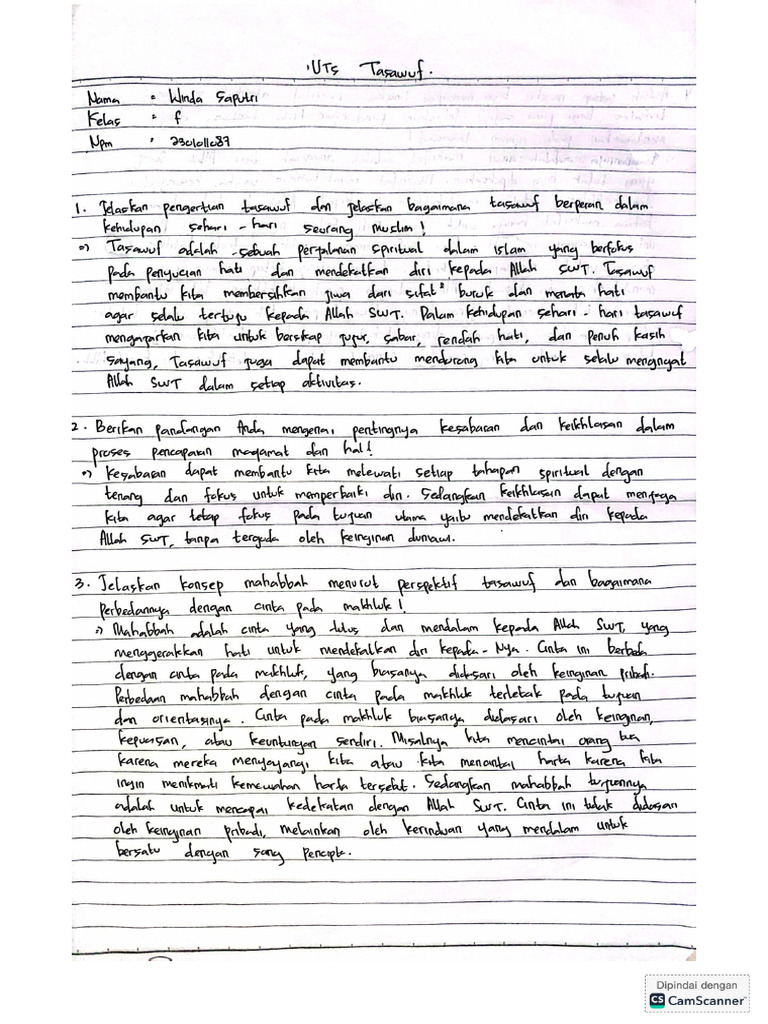 UTS Tasawuf.
Nama : Winda Saputri
Kelas : f
Npm : 2301011087
1. Jelaskan pengertian tasawuf dan jelaskan bagaimana tasawuf berperan dalam
kehidupan sehari-hari seorang muslim!
=) Tasawuf adalah sebuah perjalanan spiritual dalam islam yang berfokus
pada penyucian hati dan mendekatkan diri kepada Allah SWT. Tasawuf
membantu kita membersihkan jiwa dari sifat² buruk dan menata hati
agar selalu tertuju kepada Allah SWT. Dalam kehidupan sehari-hari tasawuf
mengajarkan kita untuk bersikap jujur, sabar, rendah hati, dan penuh kasih
sayang, Tasawuf juga dapat membantu mendorong kita untuk selalu mengingat
Allah SWT dalam setiap aktivitas.
2. Berikan pandangan Anda mengenai pentingnya kesabaran dan keikhlasan dalam
proses pencapaian maqamat dan hal!
=) Kesabaran dapat membantu kita melewati setiap tahapan spiritual dengan
tenang dan fokus untuk memperbaiki diri. Sedangkan keikhlasan dapat menjaga
kita agar tetap fokus pada tujuan utama yaitu mendekatkan diri kepada
Allah SWT, tanpa tergoda oleh keinginan duniawi.
3. Jelaskan konsep mahabbah menurut perspektif tasawuf dan bagaimana
perbedannya dengan cinta pada makhluk!
=) Mahabbah adalah cinta yang tulus dan mendalam kepada Allah SWT, yang
menggerakkan hati untuk mendekatkan diri kepada-Nya. Cinta ini berbeda
dengan cinta pada makhluk, yang biasanya didasari oleh keinginan pribadi.
Perbedaan mahabbah dengan cinta pada makhluk terletak pada tujuan
dan orientasinya. Cinta pada makhluk biasanya didasari oleh keinginan,
kepuasan, atau keuntungan sendiri. Misalnya kita mencintai orang tua
karena mereka menyayangi kita atau kita mencintai harta karena kita
ingin menikmati kemewahan harta tersebut. Sedangkan mahabbah tujuannya
adalah untuk mencapai kedekatan dengan Allah SWT. Cinta ini tidak didasari
oleh keinginan pribadi, melainkan oleh kerinduan yang mendalam untuk
bersatu dengan sang pencipta.
Dipindai dengan
CS CamScanner